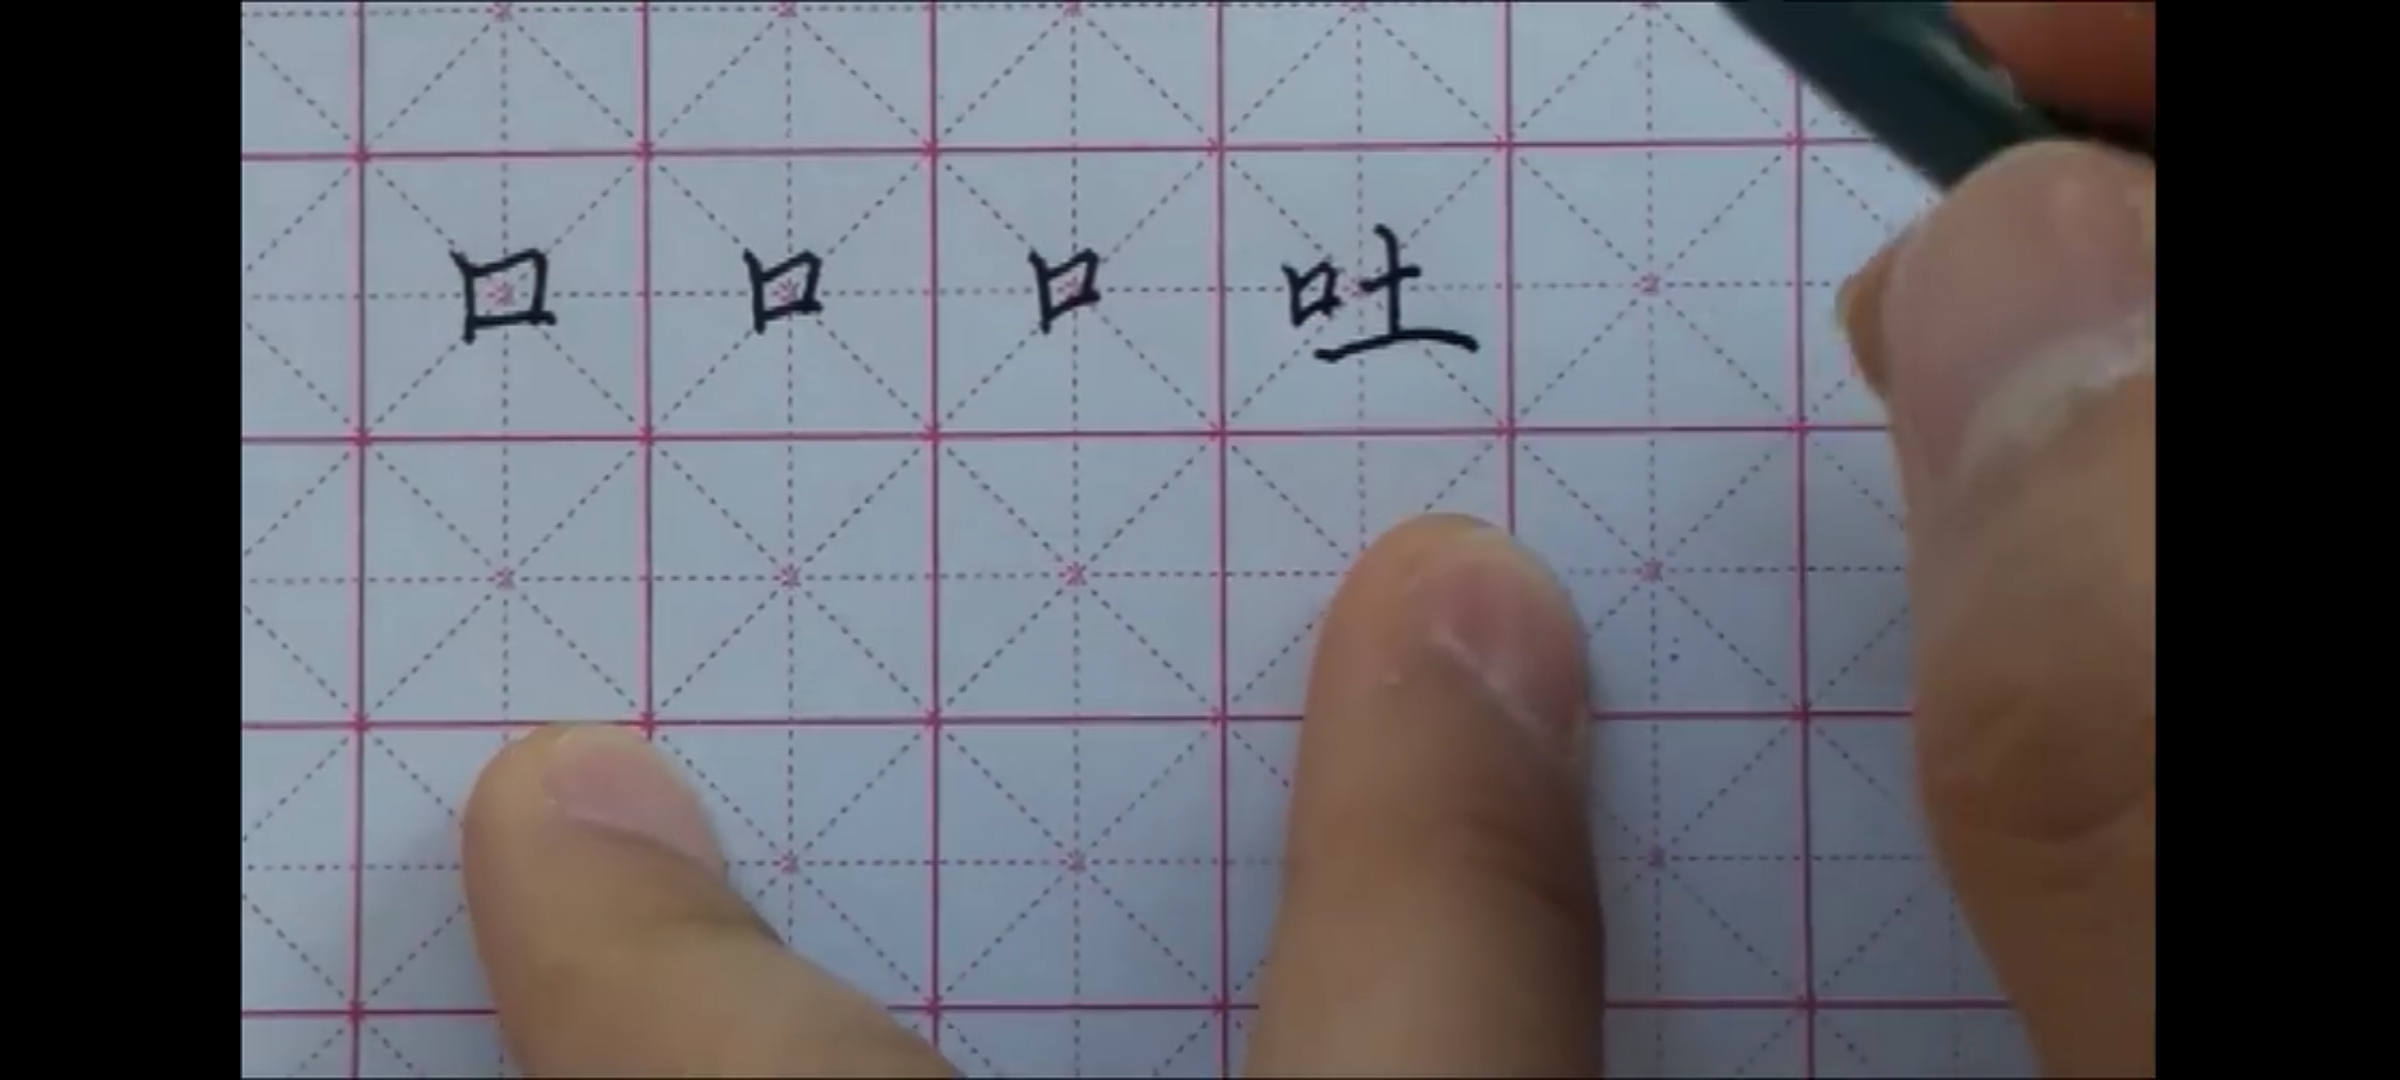 口 口 口 吐